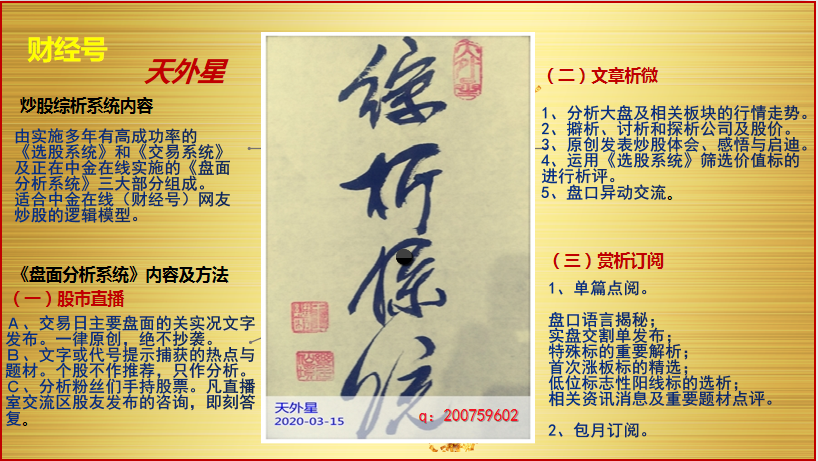 财经号
天外星
炒股综析系统内容
由实施多年有高成功率的
《选股系统》和《交易系统》
及正在中金在线实施的《盘面
分析系统》三大部分组成。
适合中金在线（财经号）网友
炒股的逻辑模型。
《盘面分析系统》内容及方法
（一）股市直播
A、交易日主要盘面的关实况文字
发布。一律原创，绝不抄袭。
B、文字或代号提示捕获的热点与
题材。个股不作推荐，只作分析。
C、分析粉丝们手持股票。凡直播
室交流区股友发布的咨询，即刻答
复。
综析系统
天外星
2020-03-15
q：200759602
（二）文章析微
1、分析大盘及相关板块的行情走势。
2、擗析、讨析和探析公司及股价。
3、原创发表炒股体会、感悟与启迪。
4、运用《选股系统》筛选价值标的
进行析评。
5、盘口异动交流。
（三）赏析订阅
1、单篇点阅。
盘口语言揭秘；
实盘交割单发布；
特殊标的重要解析；
首次涨板标的精选；
低位标志性阳线标的选析；
相关资讯消息及重要题材点评。
2、包月订阅。